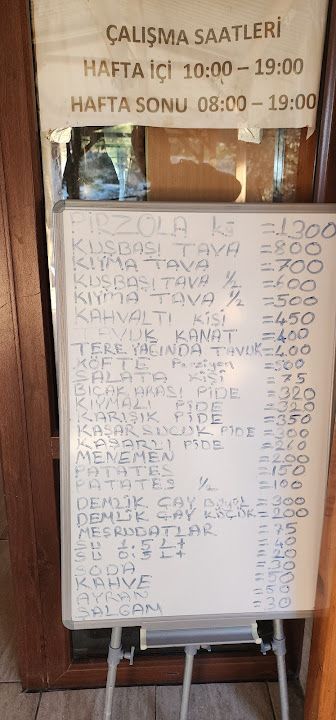 ÇALIŞMA SAATLERİ
HAFTA İÇİ 10:00 – 19:00
HAFTA SONU 08:00 – 19:00
PİRZOLA KG =1300
KUŞBAŞI TAVA =800
KIYMA TAVA =700
KUŞBAŞI TAVA 1/2 =600
KIYMA TAVA 1/2 =500
KAHVALTI KİŞİ =450
TAVUK KANAT =400
TEREYAĞINDA TAVUK =400
KÖFTE Porsiyon =500
SALATA KİŞİ = 75
BIÇAK ARASI PİDE =320
KIYMALI PİDE =320
KARIŞIK PİDE =350
KAŞAR SUCUK PİDE =300
KAŞARLI PİDE
MENEMEN =200
PATATES =150
PATATES 1/2 =100
DEMLİK ÇAY Büyük =300
DEMLİK ÇAY KÜÇÜK =200
MEŞRUBATLAR =75
SU 1.5 LT
SU 0.5 LT
SODA
KAHVE =50
AYRAN
ŞALGAM =30